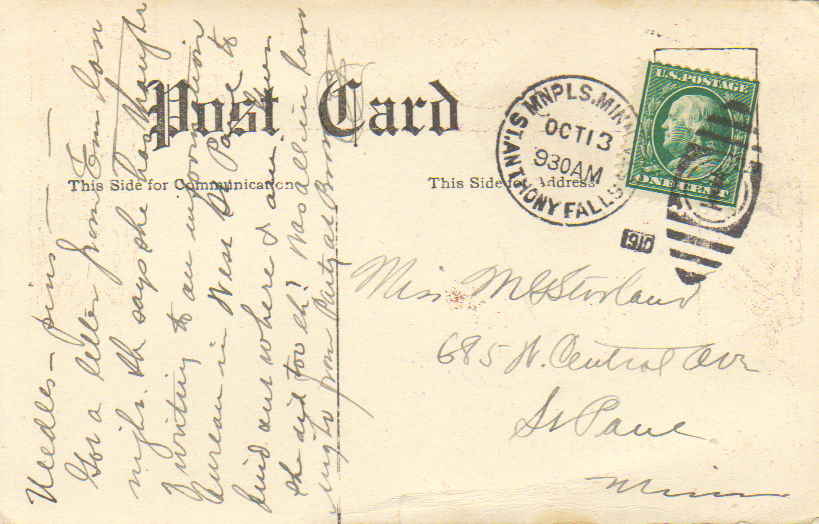 Post Card
This Side for Communication
This Side for Address
MNPLS. MINN.
OCT 13
930 AM
ST. ANTHONY FALLS
1910
U.S. POSTAGE
ONE CENT
Needles – pins – – –
Got a letter from Em last
night. Sh says she has thought
of writing to an information
Bureau in West St Paul to
find out where I am. When
she did too eh! Was all in last
night from Party at
Miss M Storland
685 W. Central Ave
St Paul
Minn